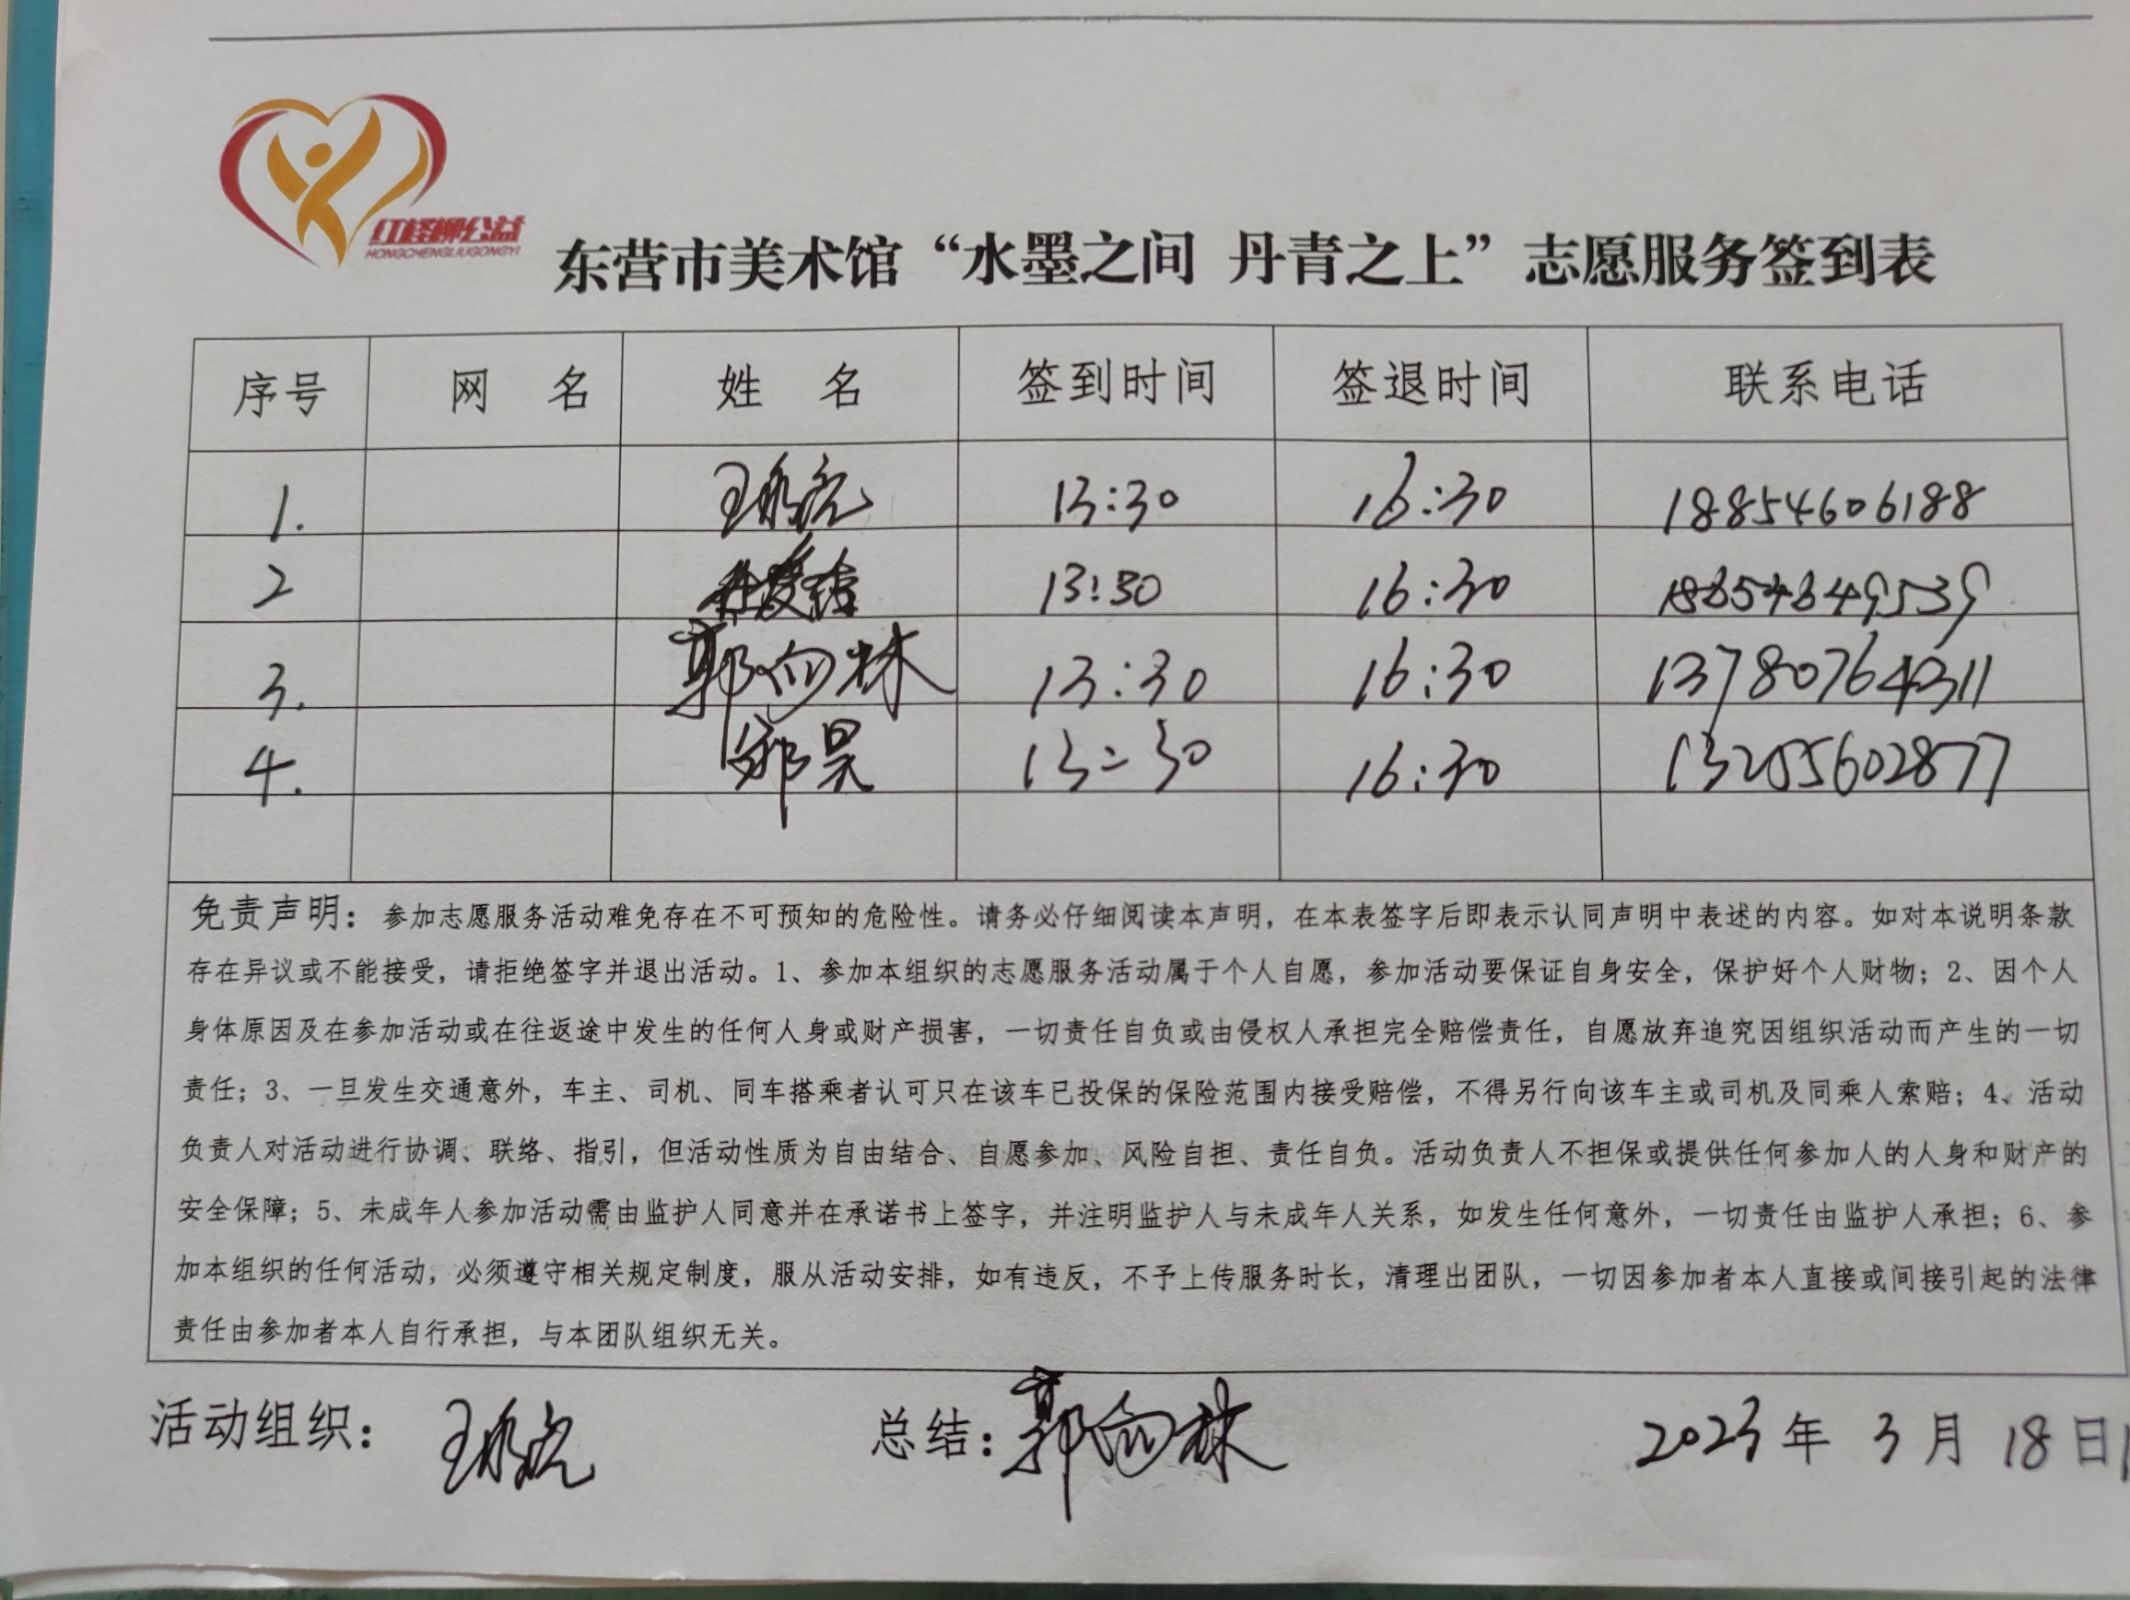 红柽柳公益
HONGCHENGLIUGONGYI
东营市美术馆“水墨之间 丹青之上”志愿服务签到表
序号 网 名 姓 名 签到时间 签退时间 联系电话
1. 13:30 16:30 18854606188
2 13:30 16:30
3. 郭向林 13:30 16:30 13780764311
4. 郑昊 13:30 16:30 13255602877
免责声明：参加志愿服务活动难免存在不可预知的危险性。请务必仔细阅读本声明，在本表签字后即表示认同声明中表述的内容。如对本说明条款
存在异议或不能接受，请拒绝签字并退出活动。1、参加本组织的志愿服务活动属于个人自愿，参加活动要保证自身安全，保护好个人财物；2、因个人
身体原因及在参加活动或在往返途中发生的任何人身或财产损害，一切责任自负或由侵权人承担完全赔偿责任，自愿放弃追究因组织活动而产生的一切
责任；3、一旦发生交通意外，车主、司机、同车搭乘者认可只在该车已投保的保险范围内接受赔偿，不得另行向该车主或司机及同乘人索赔；4、活动
负责人对活动进行协调、联络、指引，但活动性质为自由结合、自愿参加、风险自担、责任自负。活动负责人不担保或提供任何参加人的人身和财产的
安全保障；5、未成年人参加活动需由监护人同意并在承诺书上签字，并注明监护人与未成年人关系，如发生任何意外，一切责任由监护人承担；6、参
加本组织的任何活动，必须遵守相关规定制度，服从活动安排，如有违反，不予上传服务时长，清理出团队，一切因参加者本人直接或间接引起的法律
责任由参加者本人自行承担，与本团队组织无关。
活动组织： 总结：郭向林 2023年 3月 18日